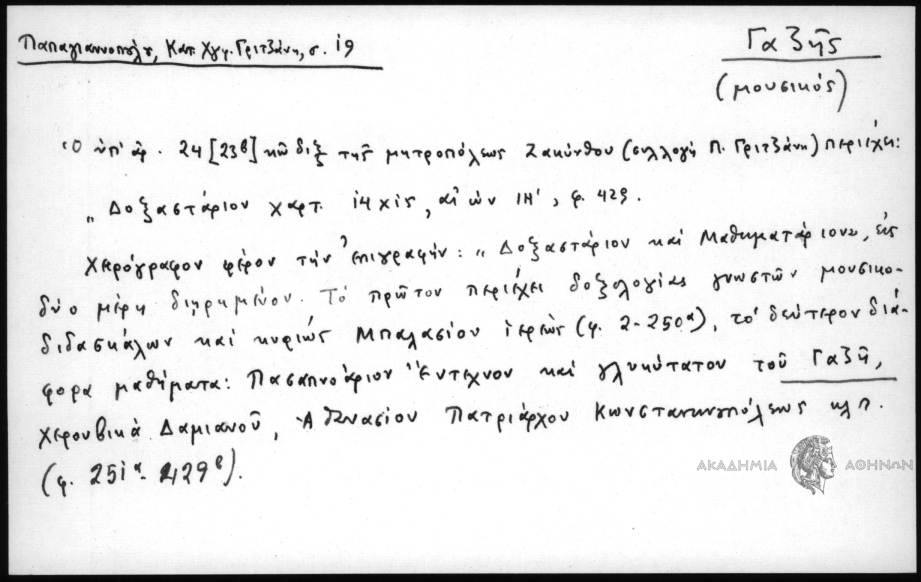 Παπαγιαννοπούλου, Κατ. Χγφ. Γριτζάνη, σ. 19
Γαζῆς
(μουσικός)
Ὁ ὑπ' ἀρ. 24 [23β] κῶδιξ τῆς μητροπόλεως Ζακύνθου (συλλογὴ Π. Γριτζάνη) περιέχει:
„ Δοξαστάριον χαρτ. 14χ15, αἰών ΙΗ', φ. 429.
Χειρόγραφον φέρον τὴν ἐπιγραφήν: „ Δοξαστάριον καὶ Μαθηματάριον", εἰς
δύο μέρη διῃρημένον. Τὸ πρῶτον περιέχει δοξολογίας γνωστῶν μουσικο-
διδασκάλων καὶ κυρίως Μπαλασίου ἱερέως (φ. 2-250α), τὸ δεύτερον διά-
φορα μαθήματα: Πασαπνοάριον Ἔντεχνον καὶ γλυκύτατον τοῦ Γαζῆ,
χερουβικὰ Δαμιανοῦ, Ἀθανασίου Πατριάρχου Κωνσταντινουπόλεως κλπ.
(φ. 251α-429β).
ΑΚΑΔΗΜΙΑ ΑΘΗΝΩΝ